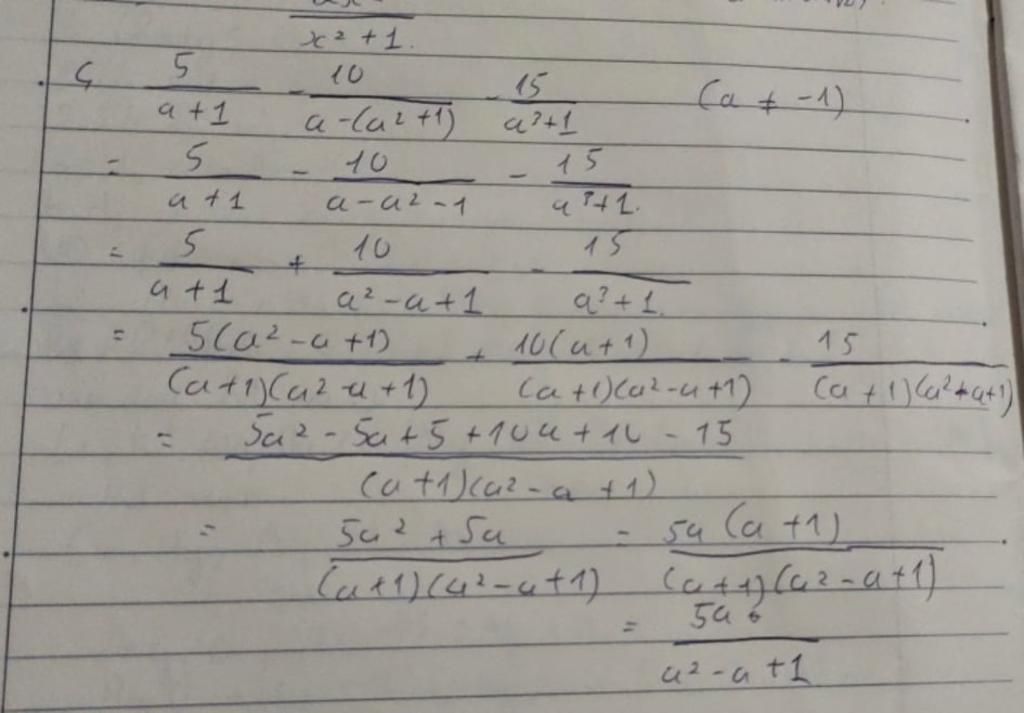 x² + 1.
ς 5/(a + 1) - 10/(a - (a² + 1)) - 15/(a³ + 1) (a ≠ -1)
= 5/(a + 1) - 10/(a - a² - 1) - 15/(a³ + 1).
= 5/(a + 1) + 10/(a² - a + 1) - 15/(a³ + 1).
= 5(a² - a + 1)/((a + 1)(a² - a + 1)) + 10(a + 1)/((a + 1)(a² - a + 1)) - 15/((a + 1)(a² - a + 1))
= (5a² - 5a + 5 + 10a + 10 - 15)/((a + 1)(a² - a + 1))
= (5a² + 5a)/((a + 1)(a² - a + 1)) = 5a(a + 1)/((a + 1)(a² - a + 1))
= 5a/(a² - a + 1)